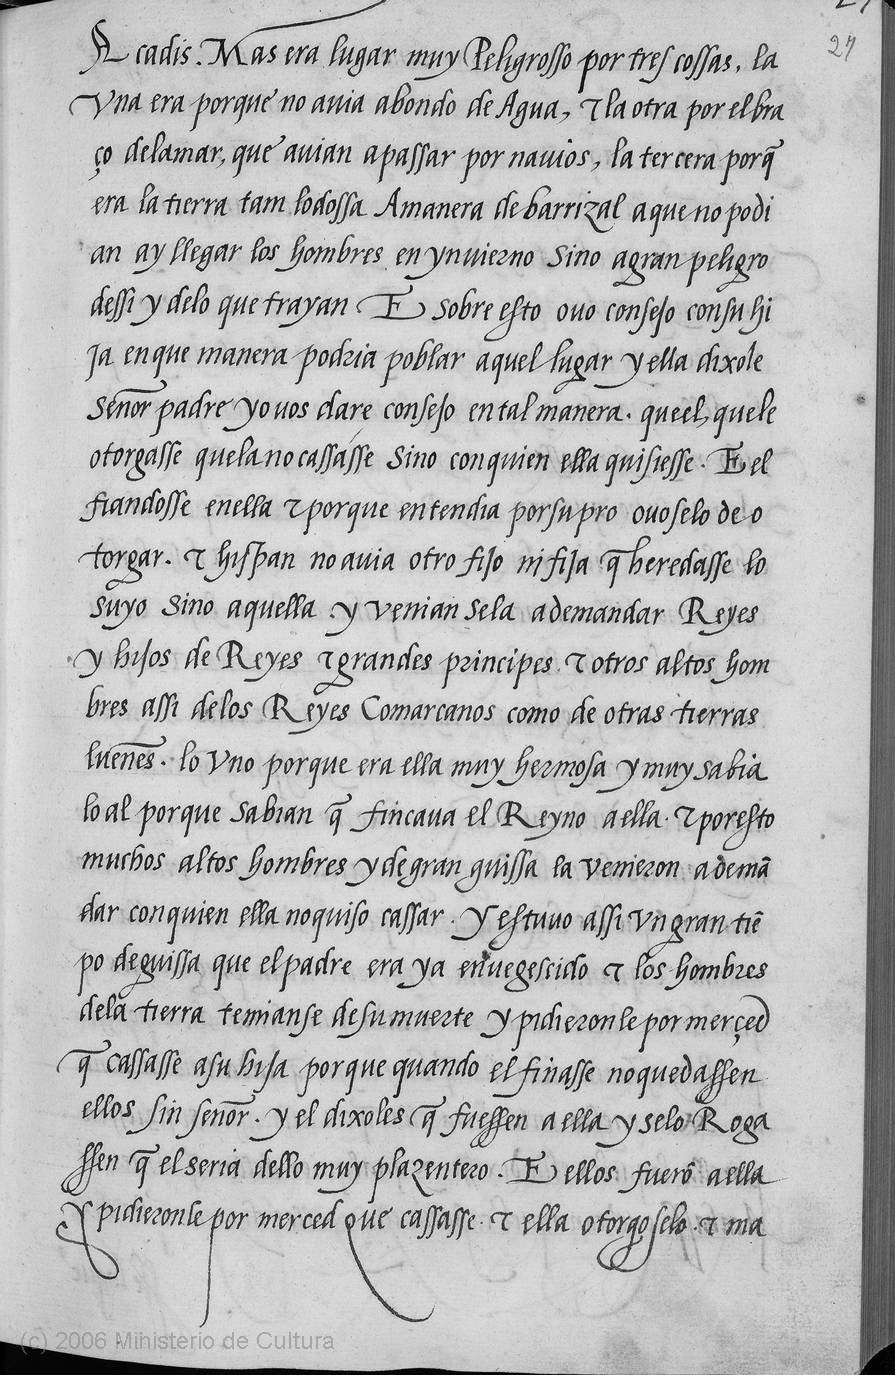 27
A cadis. Mas era lugar muy Peligrosso por tres cossas, la
Vna era porque no auia abondo de Agua, ⁊ la otra por el bra
ço delamar, que auian apassar por nauios, la tercera porq̃
era la tierra tam lodossa Amanera de barrizal a que no podi
an ay llegar los hombres en ynuierno Sino agran peligro
dessi y delo que trayan E sobre esto ouo consejo consu hi
ja en que manera podria poblar aquel lugar y ella dixole
Señor padre yo uos dare consejo en tal manera. que el, que le
otorgasse que la no cassasse Sino con quien ella quisiesse. E el
fiandosse en ella ⁊ porque entendia por su pro ouoselo de o
torgar. ⁊ hispan no auia otro fijo ni fija q̃ heredasse lo
suyo Sino aquella . y venian sela ademandar Reyes
y hijos de Reyes ⁊ grandes principes ⁊ otros altos hom
bres assi delos Reyes Comarcanos como de otras tierras
lueñes. lo Vno porque era ella muy hermosa y muy sabia
lo al porque Sabian q̃ fincaua el Reyno a ella. ⁊ por esto
muchos altos hombres y de gran guissa la venieron ademã
dar con quien ella no quiso cassar. Y estuuo assi Vn gran tiẽ
po deguissa que el padre era ya enuegescido ⁊ los hombres
dela tierra temianse de su muerte y pidieronle por merçed
q̃ cassasse a su hija porque quando el finasse no quedassen
ellos sin señor. y el dixoles q̃ fuessen a ella y selo Roga
ssen q̃ el seria dello muy plazentero. E ellos fuerõ a ella
Y pidieronle por merced que cassasse. ⁊ ella otorgoselo. ⁊ ma
(c) 2006 Ministerio de Cultura